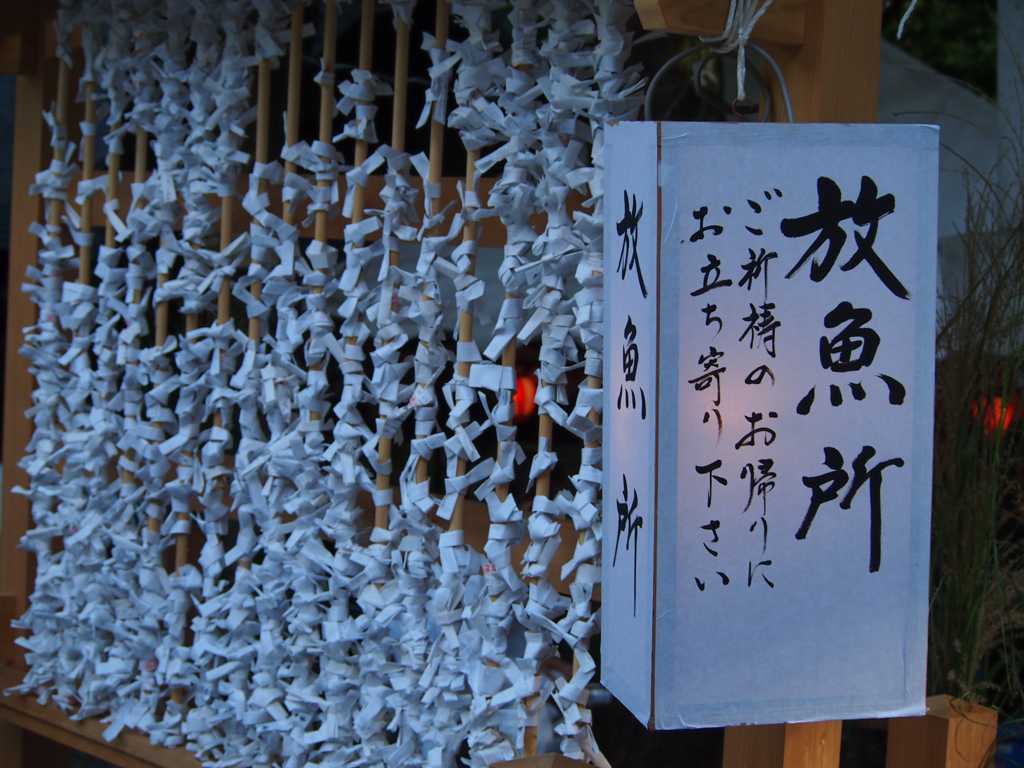 放魚所
ご祈祷のお帰りに
お立ち寄り下さい
放魚所